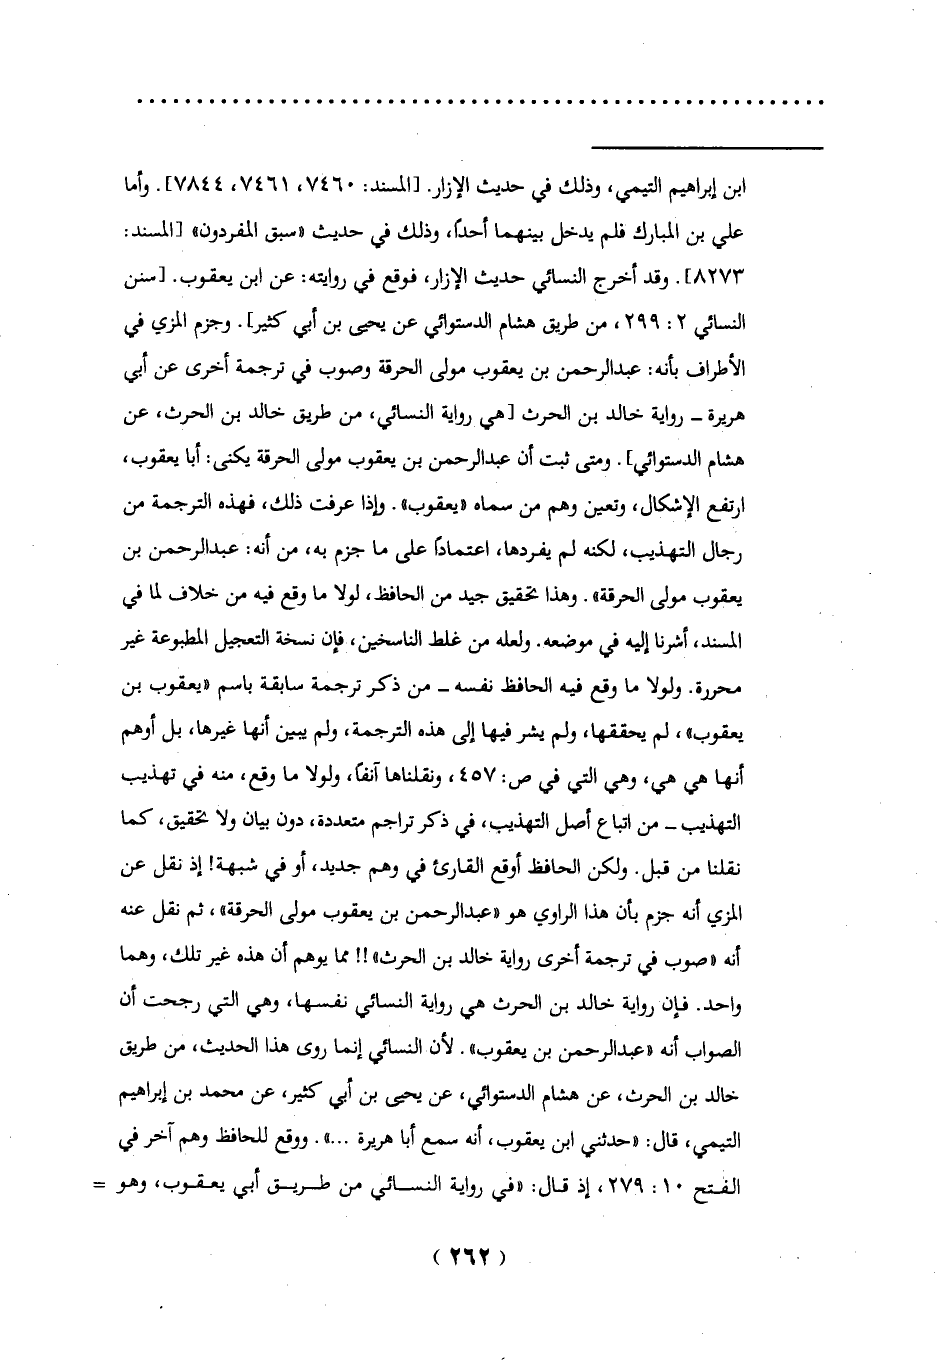 ابن إبراهيم التيمي، وذلك في حديث الإزار. [المسند: ٧٤٦٠، ٧٤٦١، ٧٨٤٤]. وأما
علي بن المبارك فلم يدخل بينهما أحداً، وذلك في حديث «سبق المفردون» [المسند:
٨٢٧٣]. وقد أخرج النسائي حديث الإزار، فوقع في روايته: عن ابن يعقوب. [سنن
النسائي ٢: ٢٩٩، من طريق هشام الدستوائي عن يحيى بن أبي كثير]. وجزم المزي في
الأطراف بأنه: عبدالرحمن بن يعقوب مولى الحرقة وصوب في ترجمة أخرى عن أبي
هريرة ــ رواية خالد بن الحرث [هي رواية النسائي، من طريق خالد بن الحرث، عن
هشام الدستوائي]. ومتى ثبت أن عبدالرحمن بن يعقوب مولى الحرقة يكنى: أبا يعقوب،
ارتفع الإشكال، وتعين وهم من سماه «يعقوب». وإذا عرفت ذلك، فهذه الترجمة من
رجال التهذيب، لكنه لم يفردها، اعتماداً على ما جزم به، من أنه: عبدالرحمن بن
يعقوب مولى الحرقة». وهذا تحقيق جيد من الحافظ، لولا ما وقع فيه من خلاف لما في
المسند، أشرنا إليه في موضعه. ولعله من غلط الناسخين، فإن نسخة التعجيل المطبوعة غير
محررة. ولولا ما وقع فيه الحافظ نفسه ــ من ذكر ترجمة سابقة باسم «يعقوب بن
يعقوب»، لم يحققها، ولم يشر فيها إلى هذه الترجمة، ولم يبين أنها غيرها، بل أوهم
أنها هي هي، وهي التي في ص: ٤٥٧، ونقلناها آنفاً، ولولا ما وقع، منه في تهذيب
التهذيب ــ من اتباع أصل التهذيب، في ذكر تراجم متعددة، دون بيان ولا تحقيق، كما
نقلنا من قبل. ولكن الحافظ أوقع القارئ في وهم جديد، أو في شبهة! إذ نقل عن
المزي أنه جزم بأن هذا الراوي هو «عبدالرحمن بن يعقوب مولى الحرقة»، ثم نقل عنه
أنه «صوب في ترجمة أخرى رواية خالد بن الحرث»!! مما يوهم أن هذه غير تلك، وهما
واحد. فإن رواية خالد بن الحرث هي رواية النسائي نفسها، وهي التي رجحت أن
الصواب أنه «عبدالرحمن بن يعقوب». لأن النسائي إنما روى هذا الحديث، من طريق
خالد بن الحرث، عن هشام الدستوائي، عن يحيى بن أبي كثير، عن محمد بن إبراهيم
التيمي، قال: «حدثني ابن يعقوب، أنه سمع أبا هريرة ...». ووقع للحافظ وهم آخر في
الفتح ١٠: ٢٧٩، إذ قال: «في رواية النسائي من طريق أبي يعقوب، وهو =
(٢٦٢)